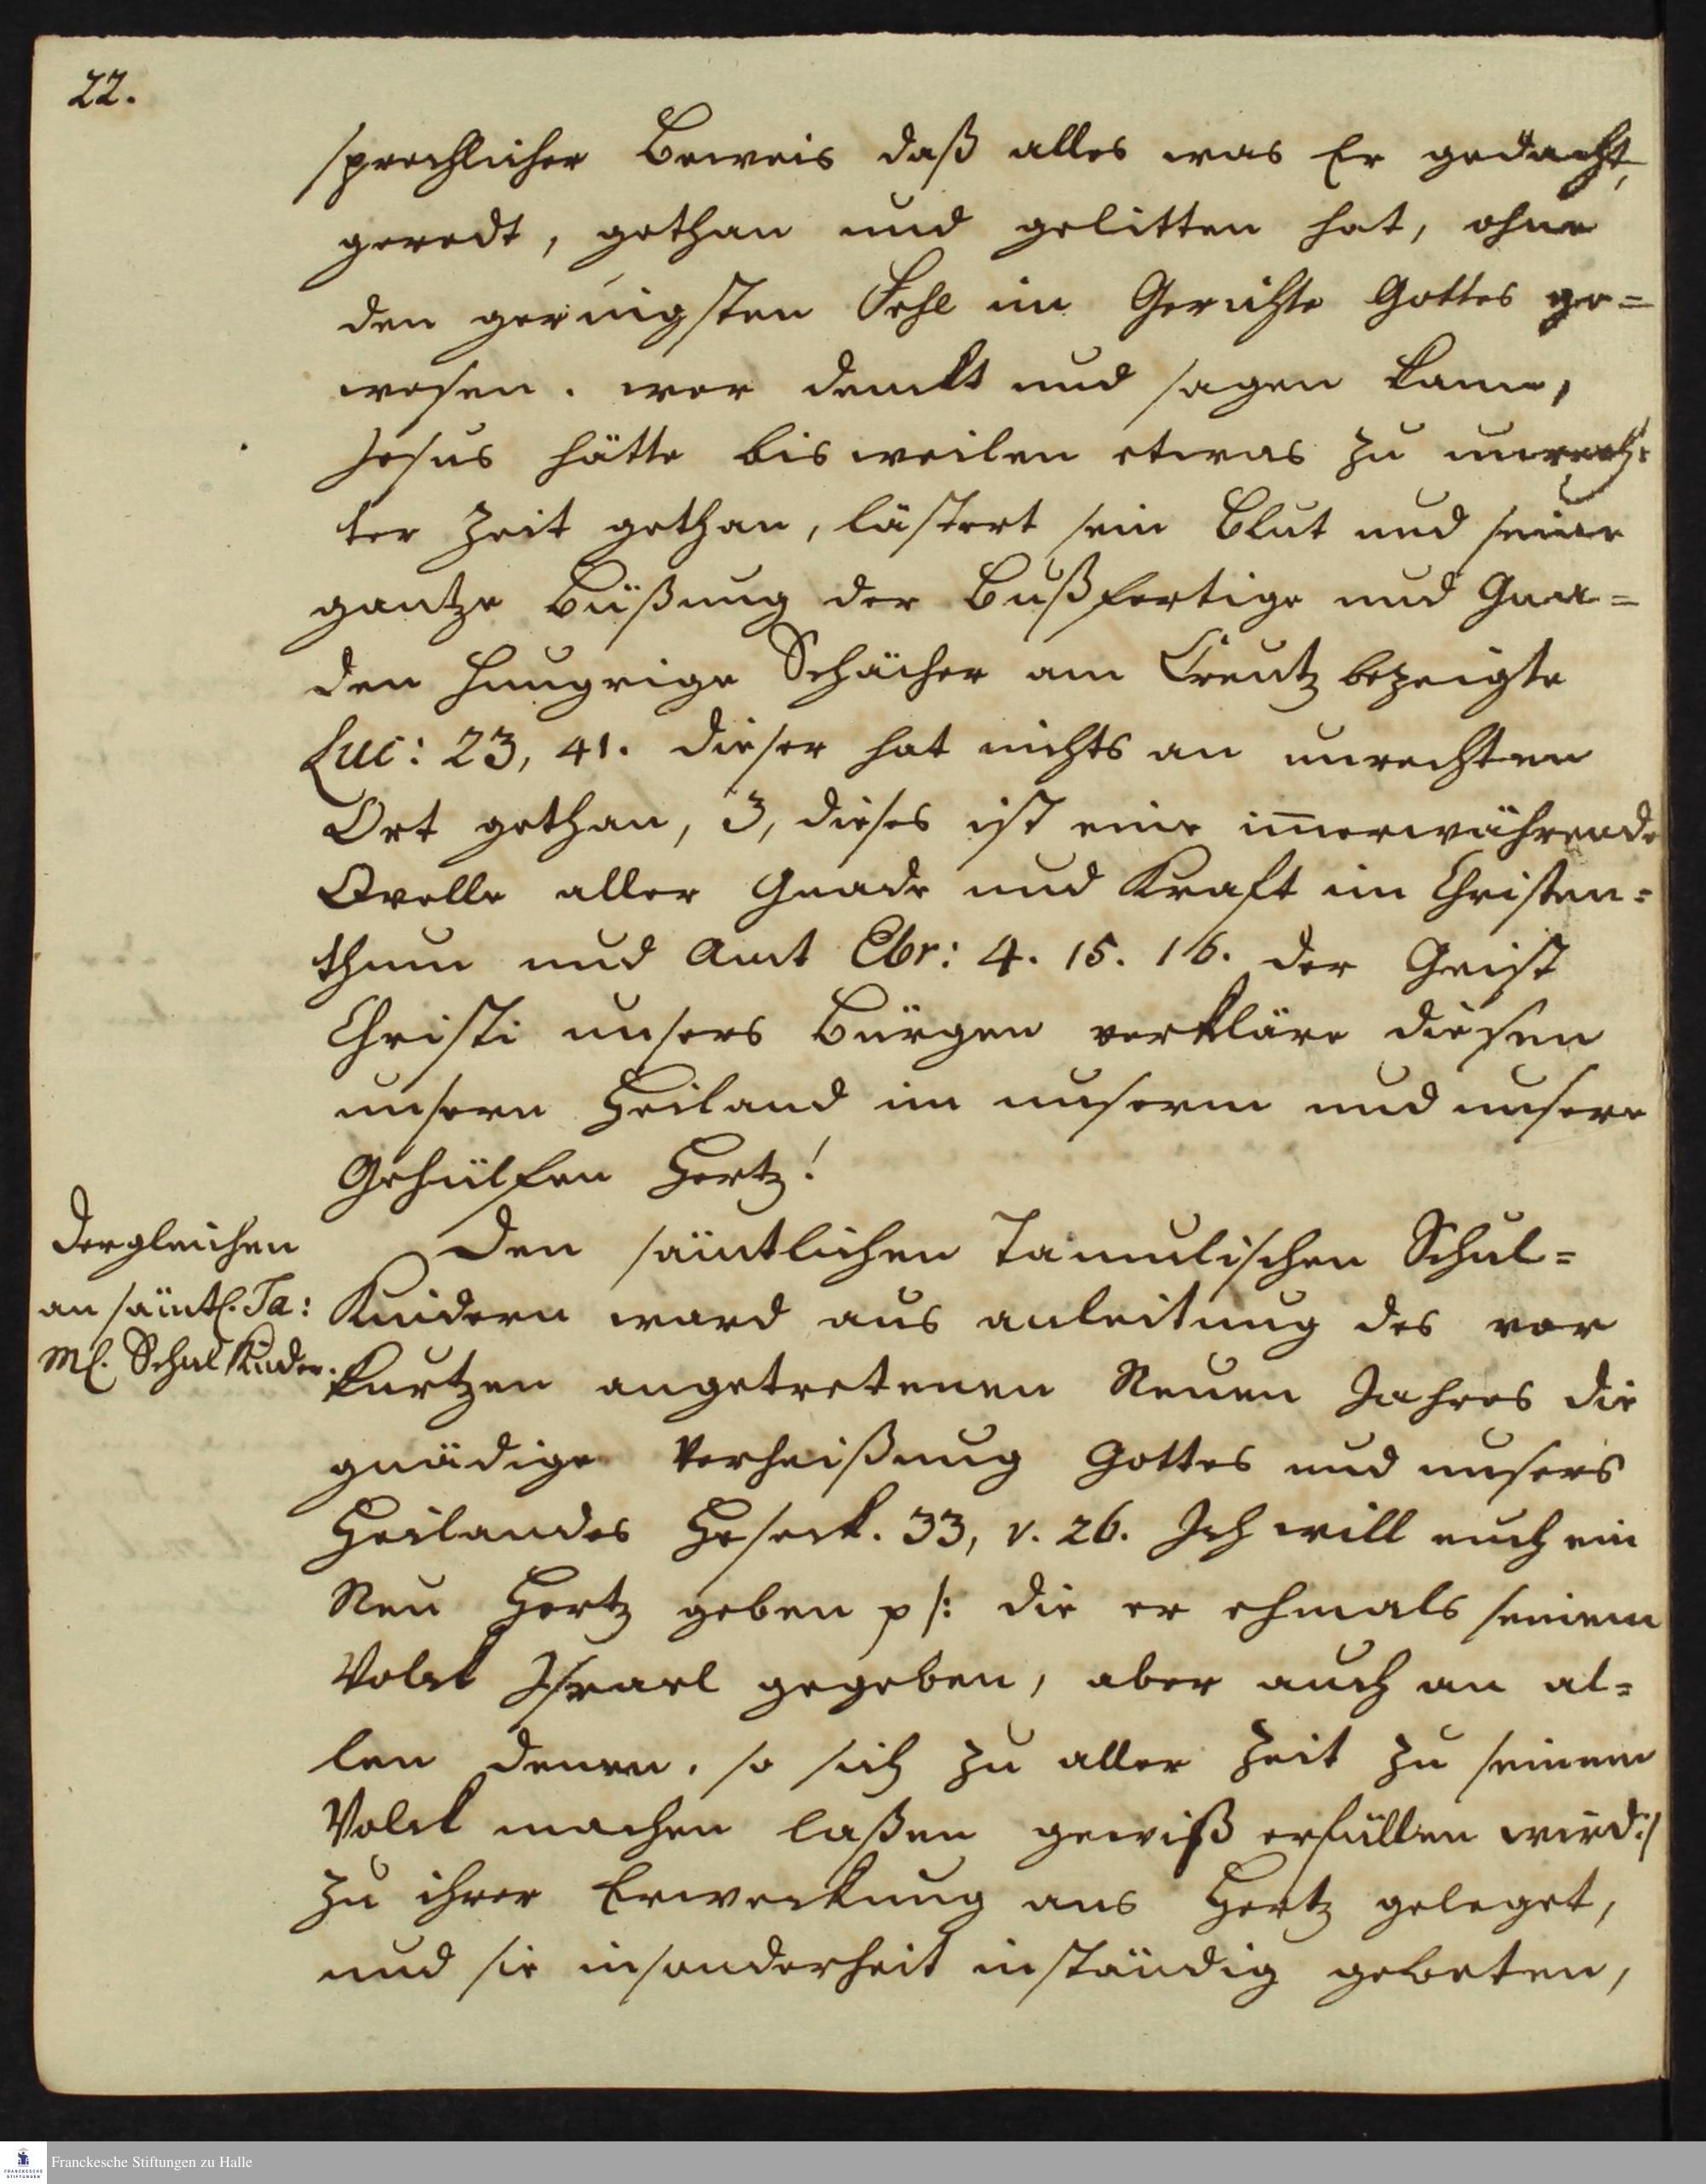 22.
sprechlicher Beweis daß alles was Er gedacht,
geredt, gethan und gelitten hat, ohne
den geringsten Fehl im Gerichte Gottes ge=
wesen. wer denckt und sagen kann,
Jesus hätte bisweilen etwas zu unrech=
ter Zeit gethan, lästert sein Blut und seine
gantze Büßung der Bußfertige und Gna=
den hungrige Schächer am Creutz bezeigte
Luc: 23, 41. dieser hat nichts an unrechten
Ort gethan, 3, dieses ist eine im̄erwährende
Qvelle aller Gnade und Kraft im Christen=
thum und Amt Ebr: 4. 15. 16. der Geist
Christi unsers Bürgen verkläre diesen
unsern Heiland im unserm und unsere
Gehülfen Hertz!
Dergleichen
an sämtl. Ta:
ml. Schul Kinder.
Den sämtlichen Tamulischen Schul=
Kindern ward aus anleitung des vor
kurtzen angetretenen Neuen Jahres die
gnädige Verheißung Gottes und unsers
Heilandes Heseck. 33, v. 26. Ich will euch ein
Neu Hertz geben p /: die er ehmals seinem
Volck Israel gegeben, aber auch an al=
len denen. so sich zu aller Zeit zu seinem
Volck machen laßen gewiß erfüllen wird :/
zu ihrer Erweckung ans Hertz geleget,
und sie insonderheit inständig gebeten,
Franckesche Stiftungen zu Halle
FRANCKESCHE
STIFTUNGEN